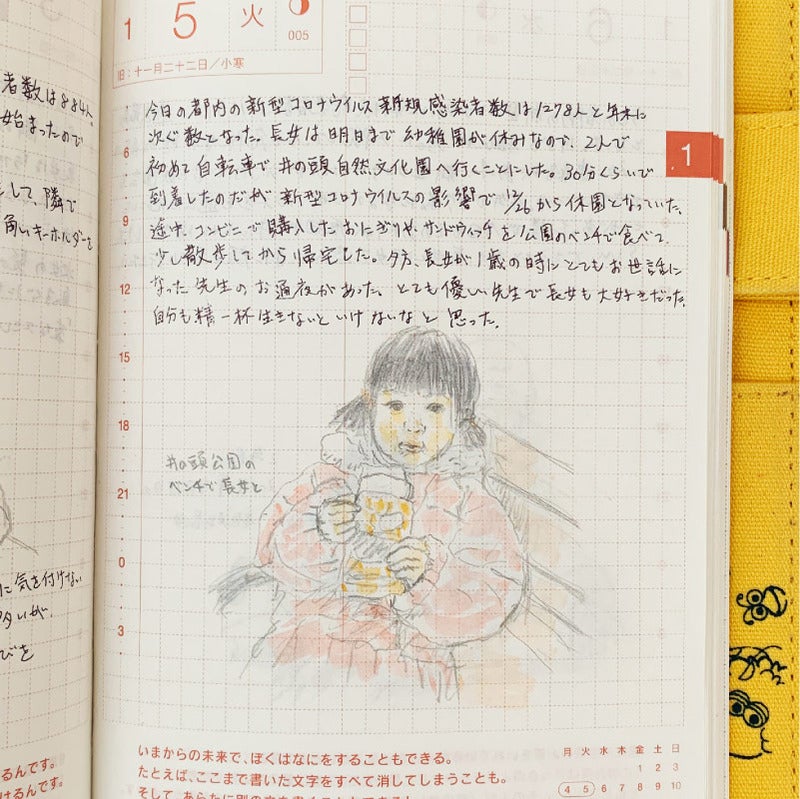 者数は884人。
始まったので
して、隣で
角いキーホルダーを
に気を付けない
びを
るんです。
けるんです。
1 5 火
005
旧:十一月二十二日/小寒
今日の都内の新型コロナウイルス新規感染者数は1278人と年末に
次ぐ数となった。長女は明日まで幼稚園が休みなので、2人で
初めて自転車で井の頭自然文化園へ行くことにした。30分くらいで
到着したのだが新型コロナウイルスの影響で12/26から休園となっていた。
途中、コンビニで購入したおにぎりや、サンドウィッチを公園のベンチで食べて
少し散歩してから帰宅した。夕方、長女が1歳の時にとてもお世話に
なった先生のお通夜があった。とても優しい先生で長女も大好きだった。
自分も精一杯生きないといけないなと思った。
6
9
12
15
18
21
0
3
1
井の頭公園の
ベンチで長女と
いまからの未来で、ぼくはなにをすることもできる。
たとえば、ここまで書いた文字をすべて消してしまうことも。
そして、あらたに別の文を書くこともできる!
月 火 水 木 金 土 日
1 2 3
4 5 6 7 8 9 10